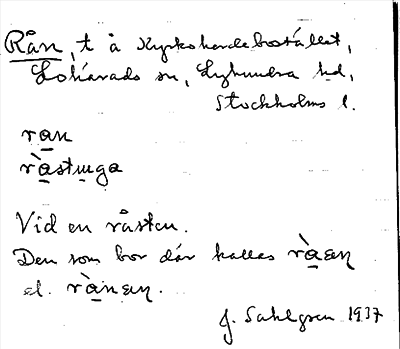 Rån, t å Kyrkoherdebostället,
Lohärads sn, Lyhundra hd,
Stockholms l.
ran
ràstuga
Vid en råsten.
Den som bor där kallas ràen
el. rànen.
J. Sahlgren 1937